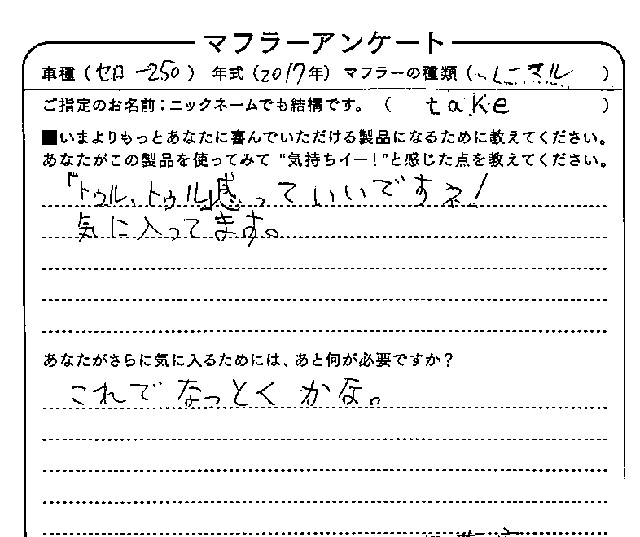 マフラーアンケート
車種(セロー250) 年式(2017年) マフラーの種類( )
ご指定のお名前:ニックネームでも結構です。( take )
■いまよりもっとあなたに喜んでいただける製品になるために教えてください。
あなたがこの製品を使ってみて"気持ちイー!"と感じた点を教えてください。
「トゥル、トゥル」感っていいですネ!
気に入ってます。
あなたがさらに気に入るためには、あと何が必要ですか?
これで なっとく かな。